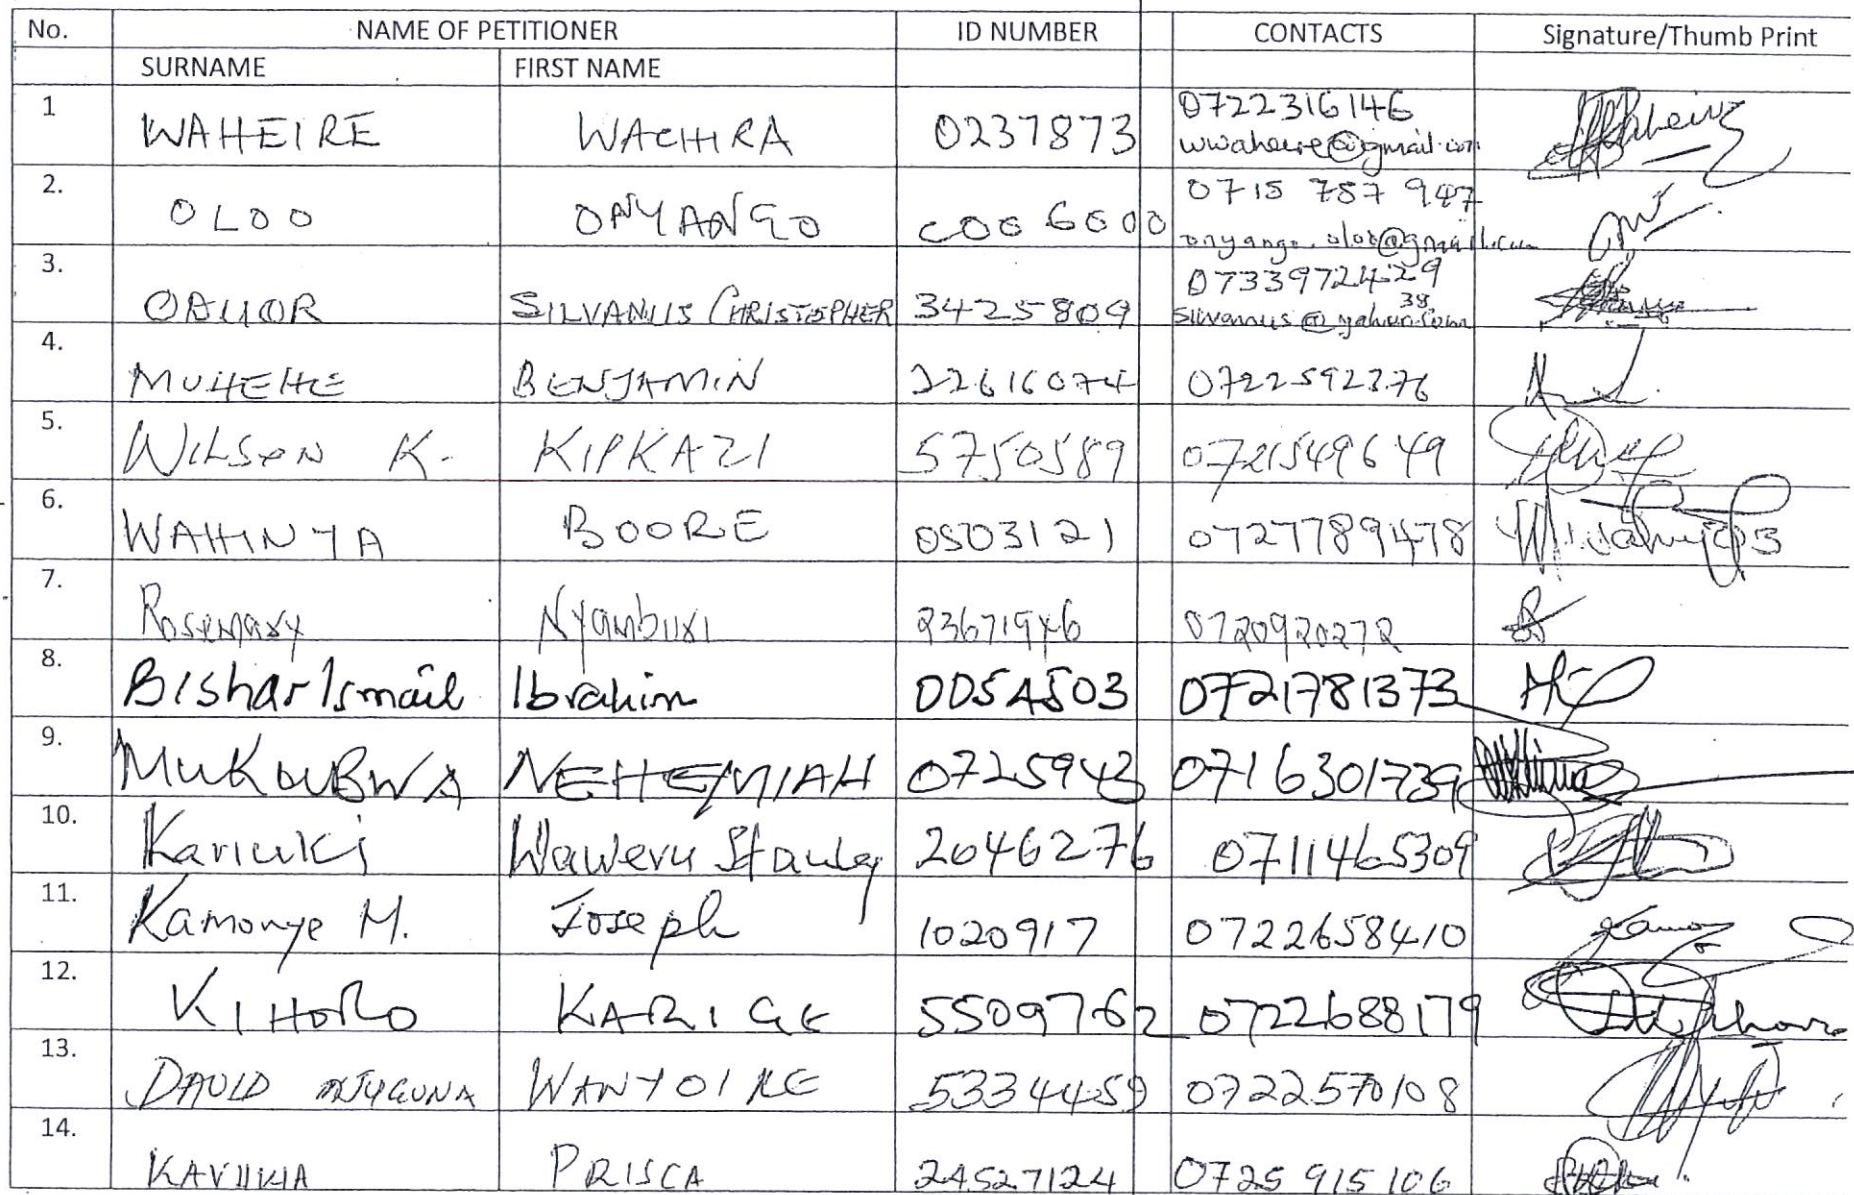 No. NAME OF PETITIONER ID NUMBER CONTACTS Signature/Thumb Print
SURNAME FIRST NAME
1 WAHEIRE WACHIRA 0237873 0722316146
wwaheire@gmail.com
2. OLOO ONYANGO 0715 787 947
onyango.oloo@gmail.com
3. ODUOR SILVANUS CHRISTOPHER 3425809 0733972429
silvanus38@yahoo.com
4. MUHEHE BENJAMIN 22616074 0722592376
5. WILSON K. KIPKAZI 5750589 0721549649
6. WAHINYA BOORE 0503121 0727789478
7. Rosemary Nyambura 23671946 0720920272
8. Bishar Ismail Ibrahim 0054503 0721781373
9. MUKOUBWA NEHEMIAH 0725943 0716301739
10. Kariuki Waweru Stanley 2046276 0711465309
11. Kamonye M. Joseph 1020917 0722658410
12. KIHORO KARIGE 5509762 0722688179
13. DAVID NJUGUNA WANYOIKE 5334459 0722570108
14. PRISCA 24527124 0725 915 106